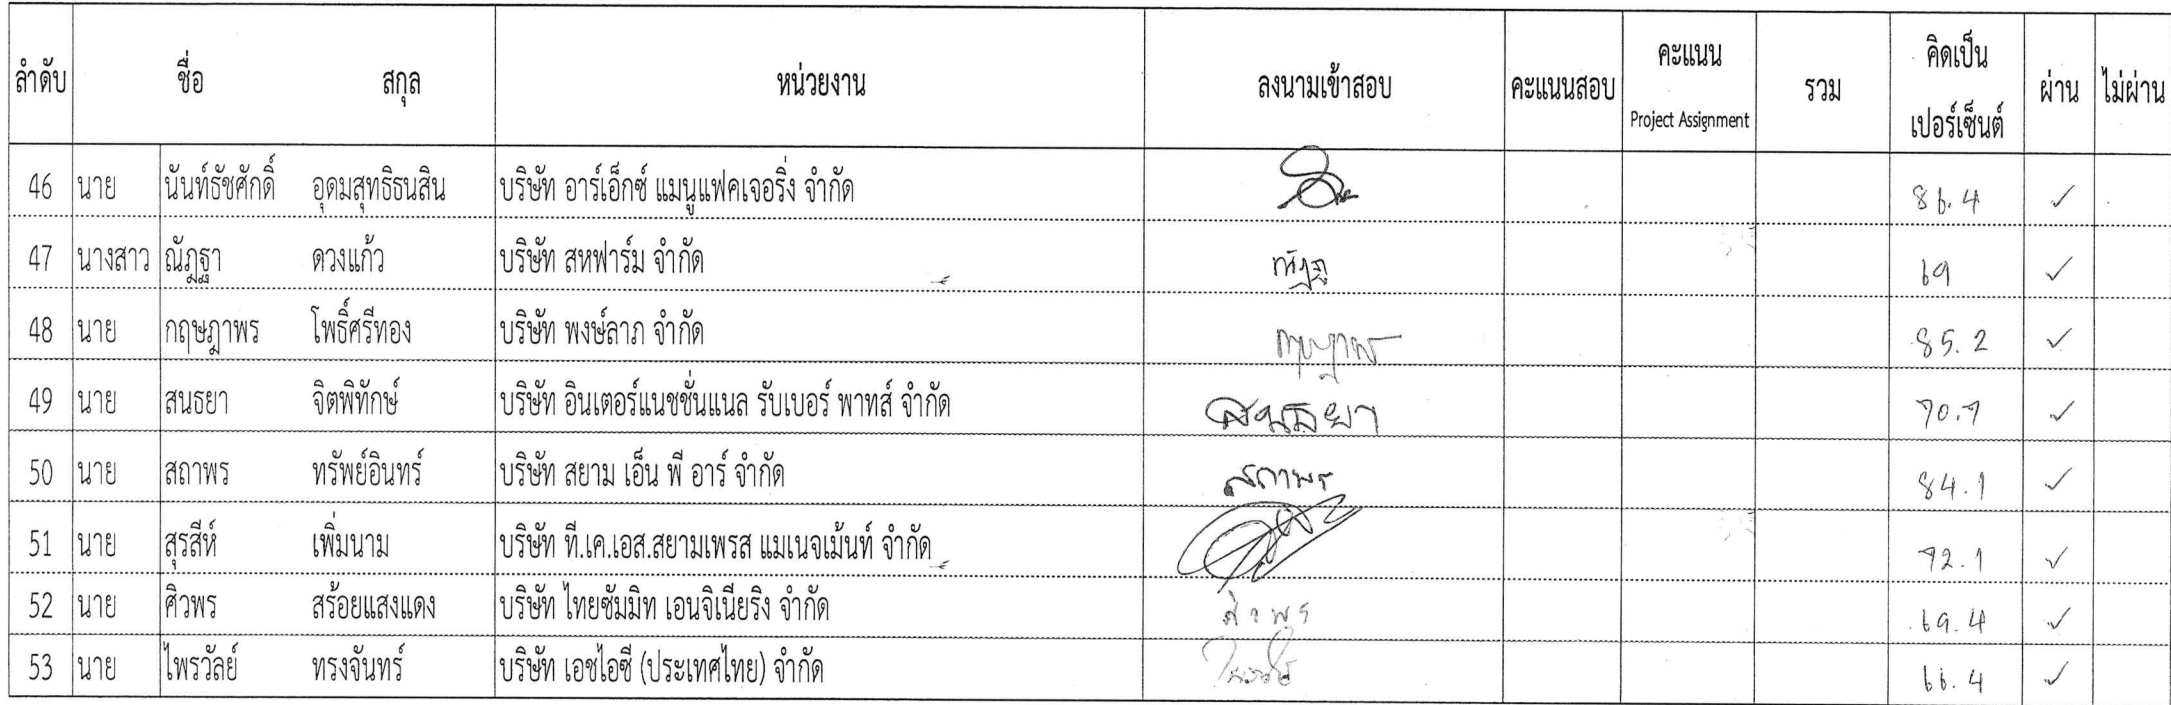 ลำดับ ชื่อ สกุล หน่วยงาน ลงนามเข้าสอบ คะแนนสอบ คะแนน Project Assignment รวม คิดเป็น เปอร์เซ็นต์ ผ่าน ไม่ผ่าน
46 นาย นันท์ธัชศักดิ์ อุดมสุทธิธนสิน บริษัท อาร์เอ็กซ์ แมนูแฟคเจอริ่ง จำกัด 86.4 ✓
47 นางสาว ณัฏฐา ดวงแก้ว บริษัท สหฟาร์ม จำกัด ณัฏฐา 69 ✓
48 นาย กฤษฎาพร โพธิ์ศรีทอง บริษัท พงษ์ลาภ จำกัด กฤษฎาพร 85.2 ✓
49 นาย สนธยา จิตพิทักษ์ บริษัท อินเตอร์แนชชั่นแนล รับเบอร์ พาทส์ จำกัด สนธยา 70.7 ✓
50 นาย สถาพร ทรัพย์อินทร์ บริษัท สยาม เอ็น พี อาร์ จำกัด สถาพร 84.1 ✓
51 นาย สุรสีห์ เพิ่มนาม บริษัท ที.เค.เอส.สยามเพรส แมเนจเม้นท์ จำกัด 72.1 ✓
52 นาย ศิวพร สร้อยแสงแดง บริษัท ไทยซัมมิท เอนจิเนียริง จำกัด ศิวพร 69.4 ✓
53 นาย ไพรวัลย์ ทรงจันทร์ บริษัท เอชไอซี (ประเทศไทย) จำกัด ไพรวัลย์ 66.4 ✓